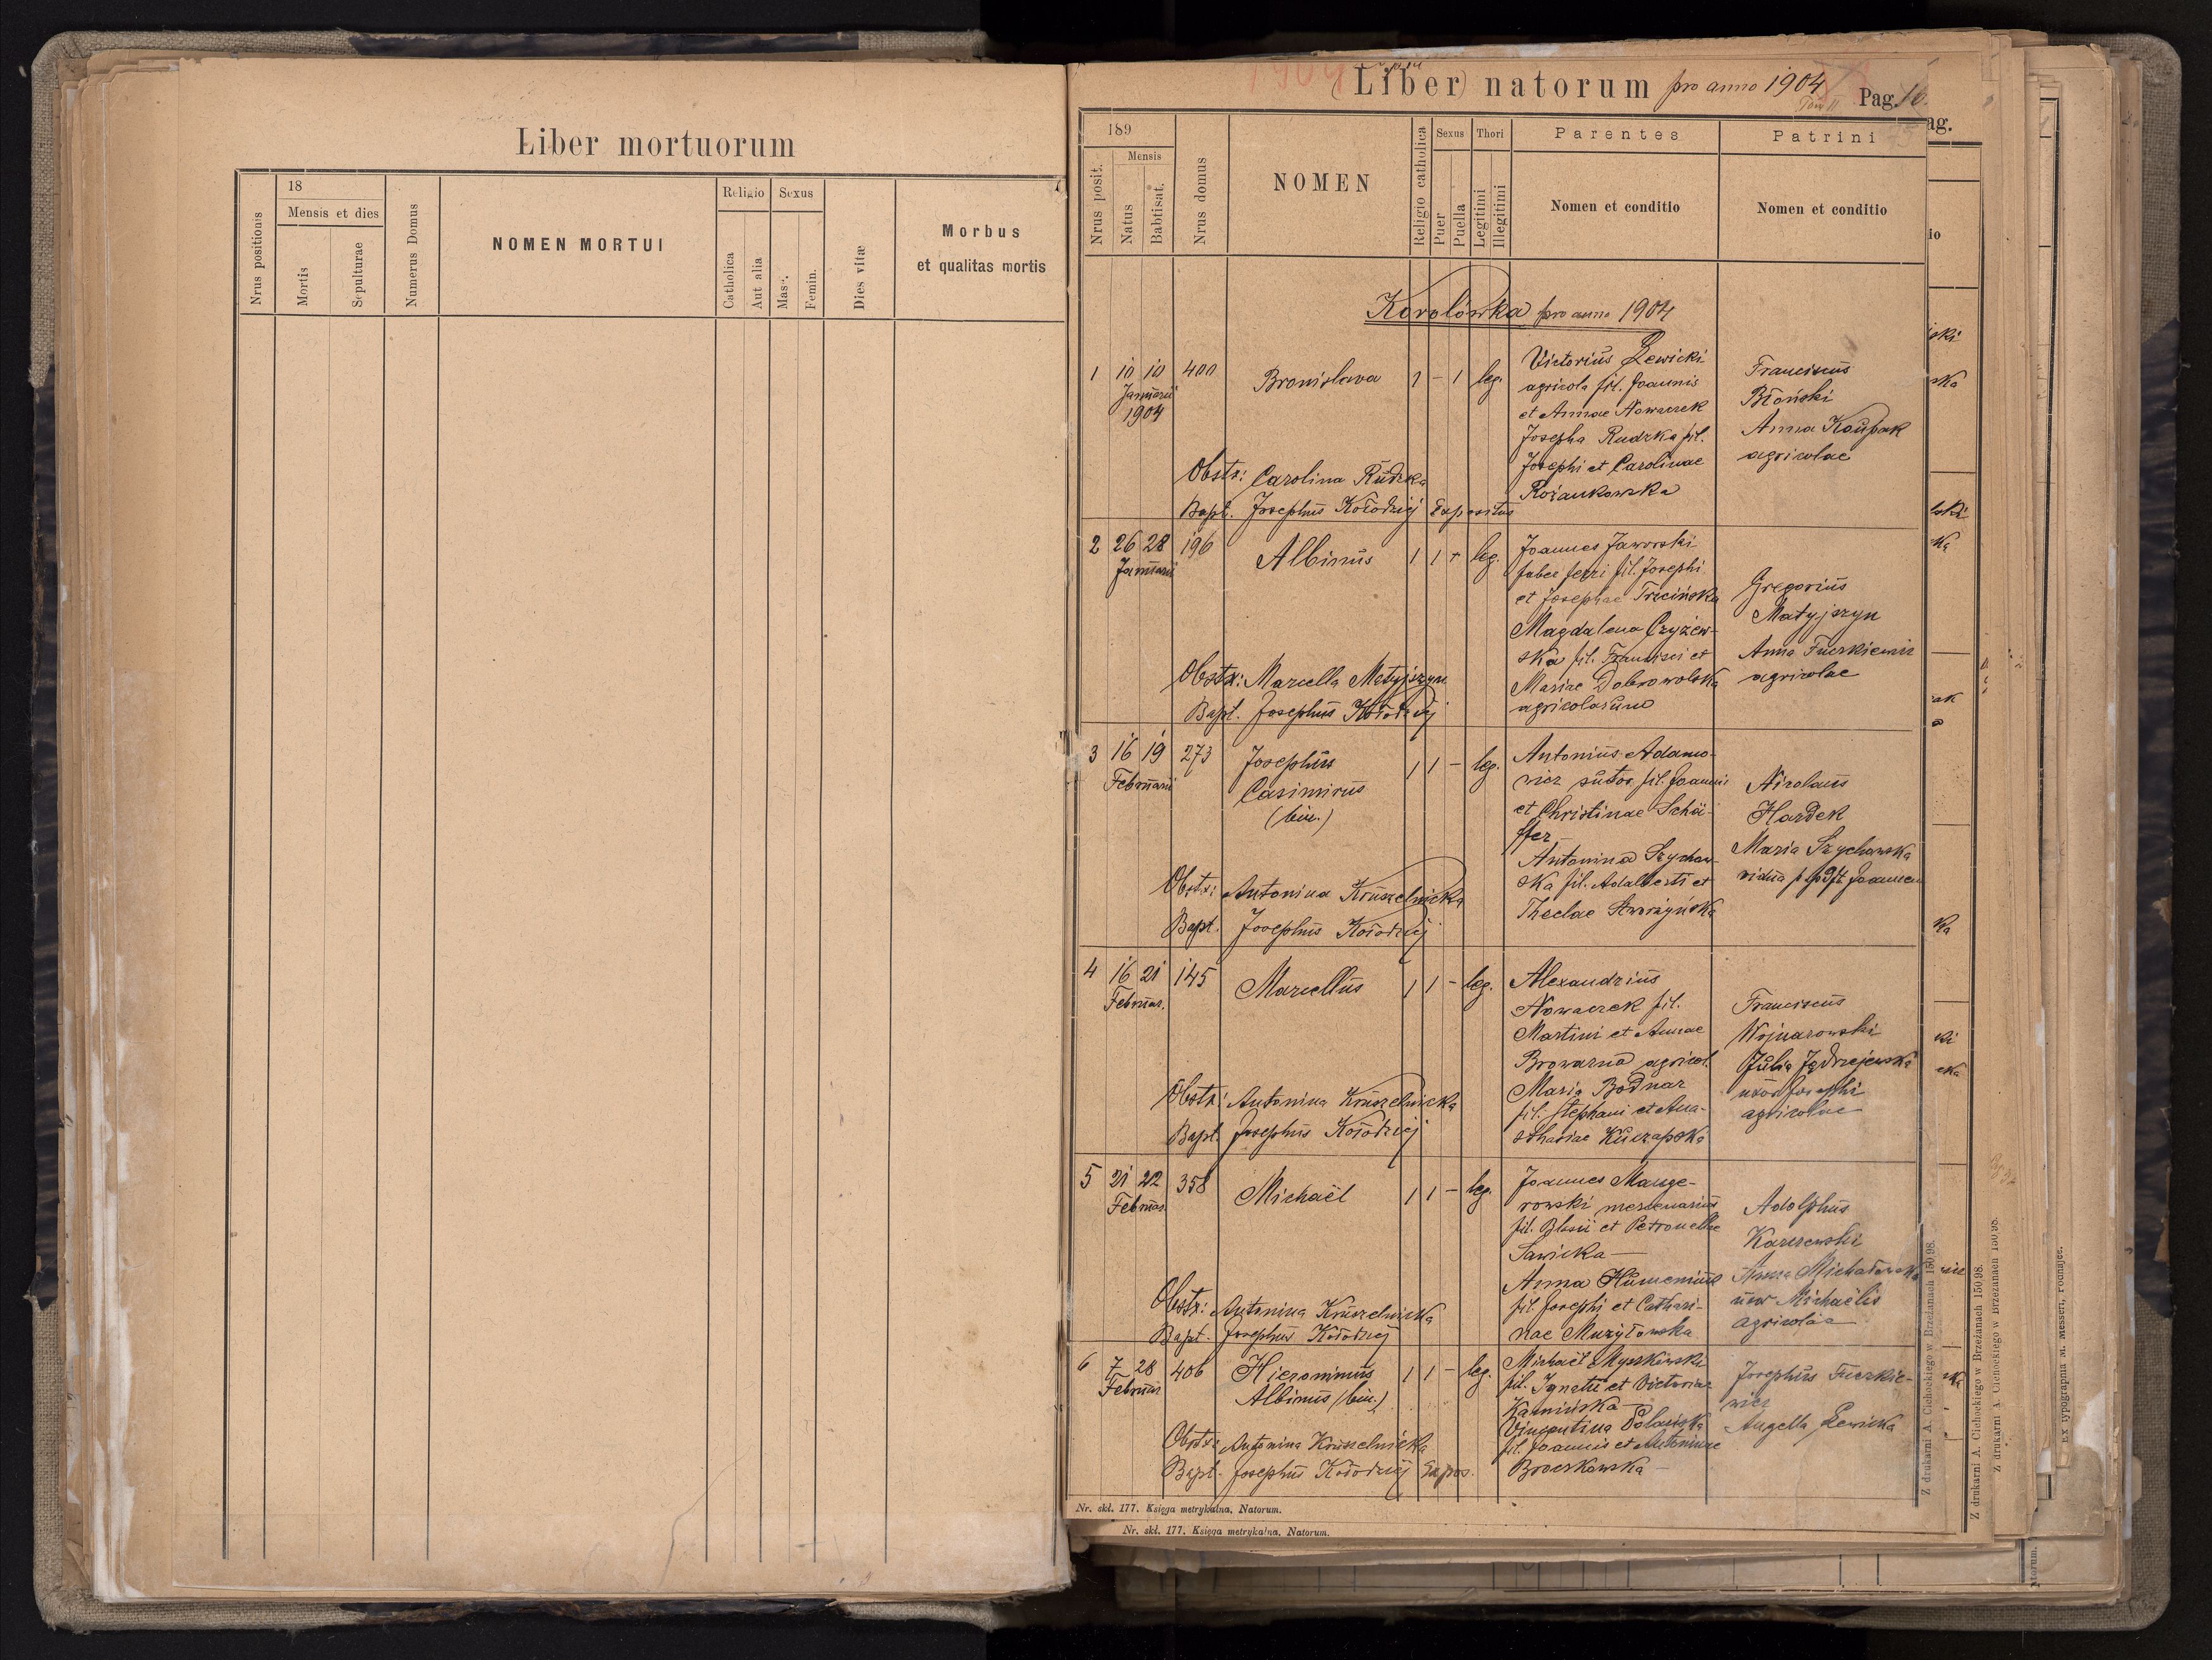 Liber mortuorum
Nrus positionis
18
Mensis et dies
Mortis
Sepulturae
Numerus Domus
NOMEN MORTUI
Religio
Catholica
Aut alia
Sexus
Masc.
Femin.
Dies vitæ
Morbus
et qualitas mortis
(Liber) natorum pro anno 1904
Pag. 16.
189
Nrus posit.
Mensis
Natus
Babtisat.
Nrus domus
NOMEN
Religio catholica
Sexus
Puer
Puella
Thori
Legitimi
Illegitimi
Parentes
Nomen et conditio
Patrini
Nomen et conditio
Korolówka pro anno 1904
1 10 10 400 Bronislava 1 - 1 leg.
Januarii
1904
Victorius Lewicki
agricola fil. Joannis
et Annae Nowaczek
Josepha Rudzka fil.
Josephi et Carolinae
Rożankowska
Franciscus
Błoński
Anna Koupak
agricolae
Obstr: Carolina Rudzka
Bapt. Josephus Kołodziej Expositus
2 26 28 196 Albinus 1 1 + leg.
Januarii
Joannes Jaworski
faber ferri fil. Josephi
et Josephae Trzcińska
Magdalena Czyżew-
ska fil. Francisci et
Mariae Dobrowolska
agricolarum
Gregorius
Matyjszyn
Anna Fuczkiewicz
agricolae
Obstr: Marcella Matyjszyn
Bapt. Josephus Kołodziej
3 16 19 273 Josephus 1 1 - leg.
Februarii
Casimirus
(bin.)
Antonius Adamo-
wicz sutor fil. Joannis
et Christinae Schä-
ffer
Antonina Szychow-
ska fil. Adalberti et
Theclae Skworzyńska
Nicolaus
Hardek
Maria Szychowska
vidua p Joannem
Obstr: Antonina Kruszelnicka
Bapt. Josephus Kołodziej
4 16 21 145 Marcellus 1 1 - leg.
Februar.
Alexandrius
Nowaczek fil.
Martini et Annae
Browarna agricol.
Maria Bodnar
fil. Stephani et Ana-
sthasiae Kuczapska
Franciscus
Wojnarowski
Julia Jędrzejewska
uxor Josephi
agricolae
Obstr: Antonina Kruszelnicka
Bapt. Josephus Kołodziej
5 21 22 358 Michaël 1 1 - leg.
Februar.
Joannes Mange-
rowski mercenarius
fil. Blasii et Petronellae
Sawicka
Anna Humenius
fil. Josephi et Cathari-
nae Muzyłowska
Adolphus
Karczewski
Anna Michałowska
uxor Michaëlis
agricolae
Obstr: Antonina Kruszelnicka
Bapt. Josephus Kołodziej
6 7 28 406 Hieronimus 1 1 - leg.
Februar
Albinus (bin.)
Michaël Myszkowski
fil. Ignatii et Victoriae
Kamińska
Vincentina Polańska
fil. Joannis et Antoninae
Broczkowska
Josephus Fuczkie-
wicz
Angella Lewicka
Obstr: Antonina Kruszelnicka
Bapt. Josephus Kołodziej Expos.
Nr. skł. 177. Księga metrykalna. Natorum.
Nr. skł. 177. Księga metrykalna. Natorum.
Z drukarni A. Cichockiego w Brzeżanach 150/98.
Z drukarni A. Cichockiego w Brzeżanach 150/98.
Z drukarni A. Cichockiego w Brzeżanach 150/98.